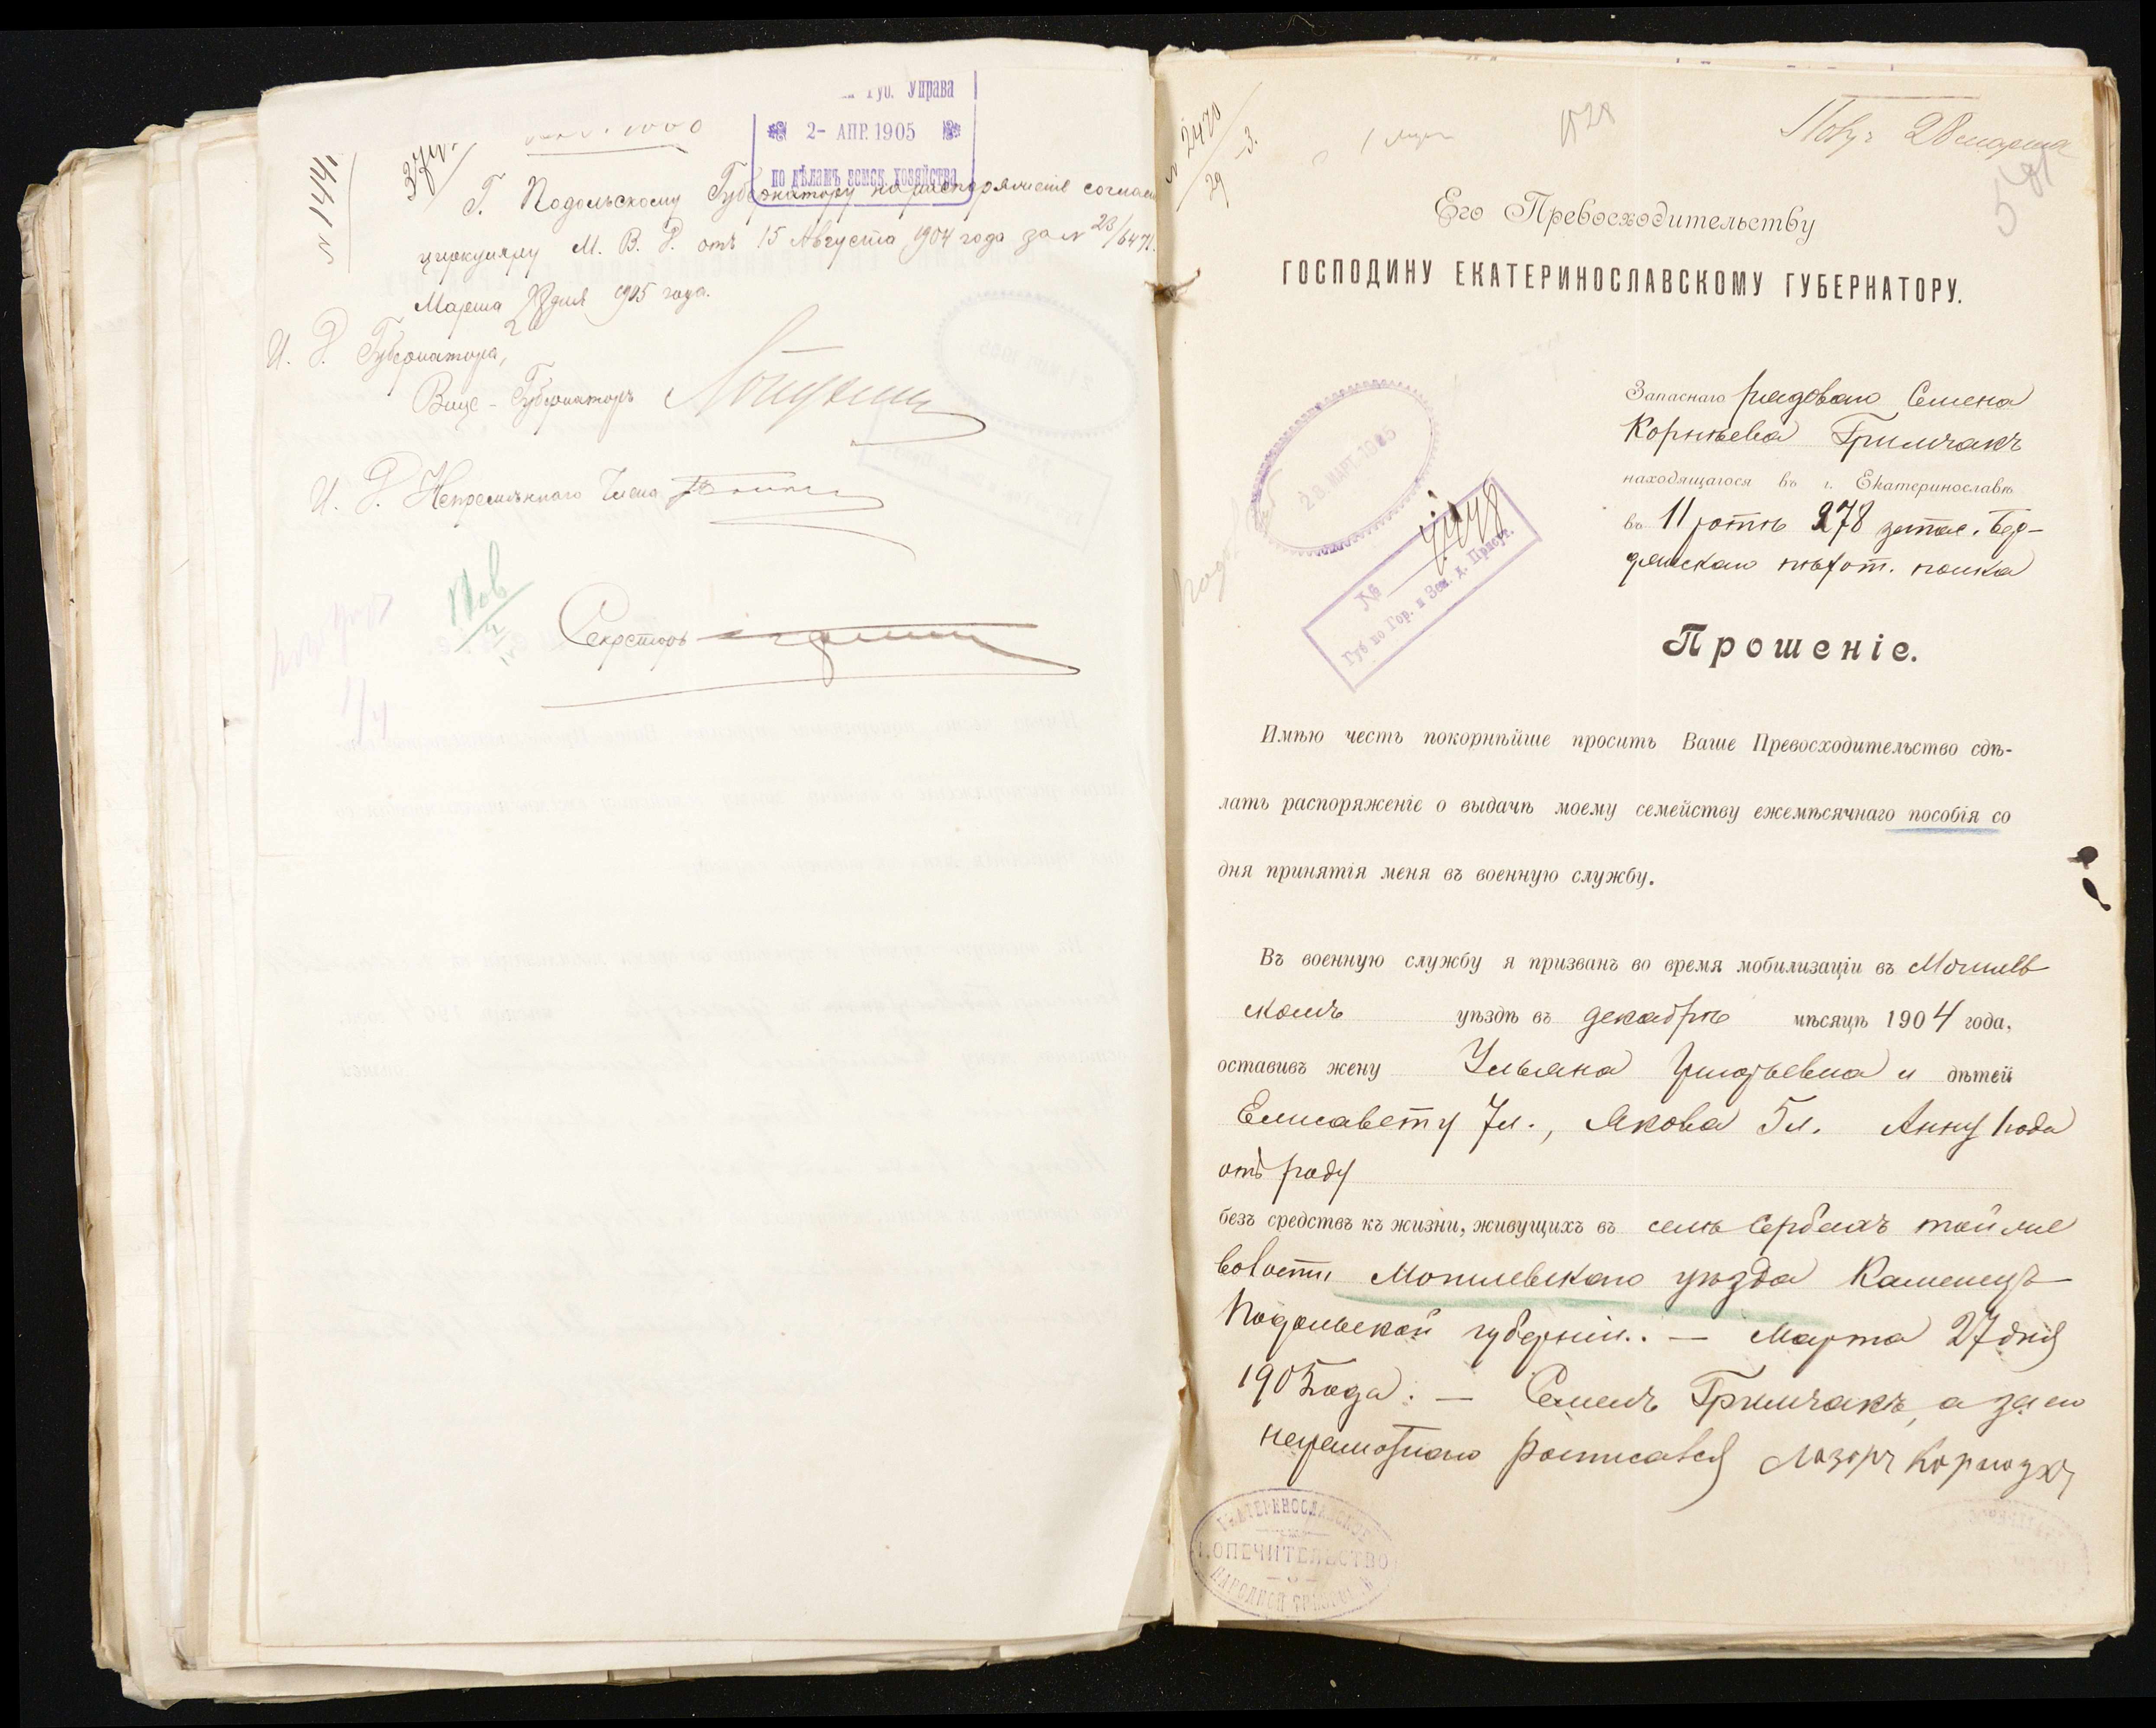 Губ. Управа
2- АПР. 1905
по дѣламъ земск. хозяйства
N 1441
Г. Подольскому Губернатору на распоряженіе согласно
циркуляру М. В. Д. отъ 15 Августа 1904 года за N 23/6471.
Марта 28 дня 1905 года.
И. Д. Губернатора,
Вице-Губернаторъ
И. Д. Непремѣннаго Члена
Секретарь
N 2470
29/3.
1528
Пов. 28 марта
Его Превосходительству
ГОСПОДИНУ ЕКАТЕРИНОСЛАВСКОМУ ГУБЕРНАТОРУ.
28 МАРТ. 1905
№
Губ по Гор. и Зем. д. Присут.
Запаснаго рядоваго Семена
Корнѣева Гримчакъ
находящагося въ г. Екатеринославѣ
въ 11 ротѣ 278 запас. Бер-
дянскаго пѣхот. полка
Прошеніе.
Имѣю честь покорнѣйше просить Ваше Превосходительство сдѣ-
лать распоряженіе о выдачѣ моему семейству ежемѣсячнаго пособія со
дня принятія меня въ военную службу.
Въ военную службу я призванъ во время мобилизаціи въ Могилев
скомъ уѣздѣ въ декабрѣ мѣсяцѣ 1904 года,
оставивъ жену Ульяна Григорьевна и дѣтей
Елисавету 7л., Якова 5л. Анну 1 года
отъ роду
безъ средствъ къ жизни, живущихъ въ селѣ Сербахъ той же
волости Могилевскаго уѣзда Каменецъ-
Подольской губерніи.. — Марта 27 дня
1905 года: — Семенъ Гримчакъ, а за его
неграмотнаго росписался Лазорь
ЕКАТЕРИНОСЛАВСКОЕ
ПОПЕЧИТЕЛЬСТВО
НАРОДНОЙ ТРЕЗВОСТИ